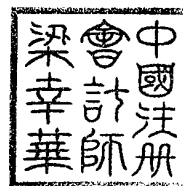 中國注册
會計師
梁幸華